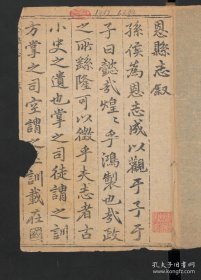 恩縣志叙
孫侯為恩志成以觀平子平
子曰懿哉煌煌乎鴻製也哉政
之所繇隆可以徵乎夫志者古
小史之遺也掌之司徒謂之訓
方掌之司空謂之土訓載在國
孔子旧书网